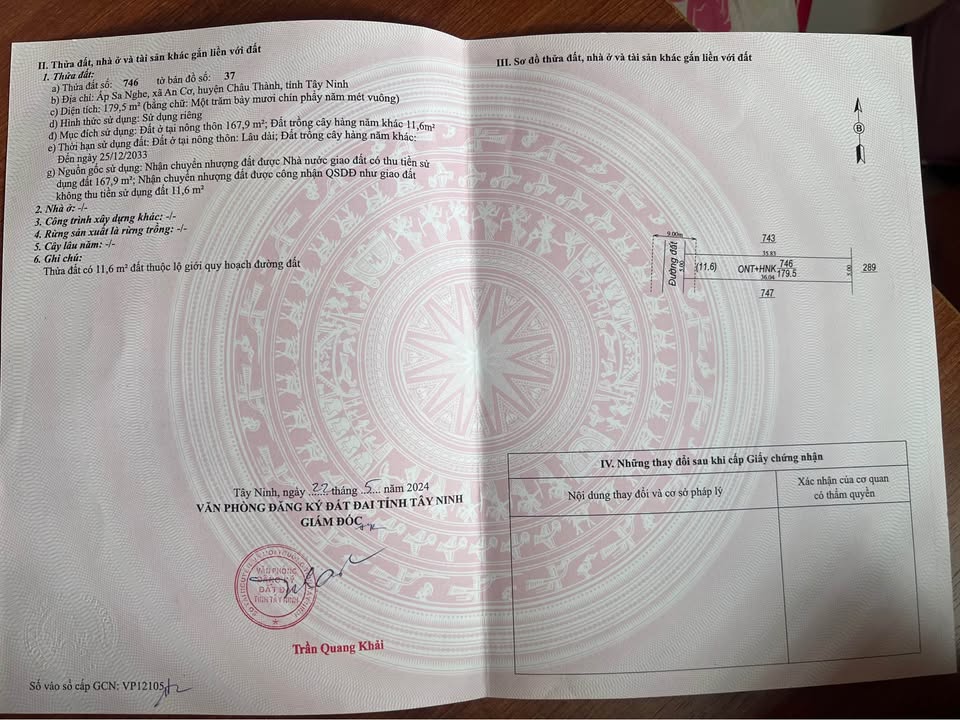 II. Thửa đất, nhà ở và tài sản khác gắn liền với đất
1. Thửa đất:
a) Thửa đất số: 746 tờ bản đồ số: 37
b) Địa chỉ: Ấp Sa Nghe, xã An Cơ, huyện Châu Thành, tỉnh Tây Ninh
c) Diện tích: 179,5 m² (bằng chữ: Một trăm bảy mươi chín phẩy năm mét vuông)
d) Hình thức sử dụng: Sử dụng riêng
đ) Mục đích sử dụng: Đất ở tại nông thôn 167,9 m²; Đất trồng cây hàng năm khác 11,6m²
e) Thời hạn sử dụng đất: Đất ở tại nông thôn: Lâu dài; Đất trồng cây hàng năm khác:
Đến ngày 25/12/2033
g) Nguồn gốc sử dụng: Nhận chuyển nhượng đất được Nhà nước giao đất có thu tiền sử
dụng đất 167,9 m²; Nhận chuyển nhượng đất được công nhận QSDĐ như giao đất
không thu tiền sử dụng đất 11,6 m²
2. Nhà ở: -/-
3. Công trình xây dựng khác: -/-
4. Rừng sản xuất là rừng trồng: -/-
5. Cây lâu năm: -/-
6. Ghi chú:
Thửa đất có 11,6 m² đất thuộc lộ giới quy hoạch đường đất
Tây Ninh, ngày 22 tháng 5 năm 2024
VĂN PHÒNG ĐĂNG KÝ ĐẤT ĐAI TỈNH TÂY NINH
GIÁM ĐỐC
VĂN PHÒNG
ĐĂNG KÝ
ĐẤT ĐAI
TỈNH TÂY NINH
Trần Quang Khải
Số vào sổ cấp GCN: VP12105
III. Sơ đồ thửa đất, nhà ở và tài sản khác gắn liền với đất
B
9.00m
743
35.83
Đường đất
5.00
(11.6)
ONT+HNK
746
179.5
36.04
5.00
289
747
IV. Những thay đổi sau khi cấp Giấy chứng nhận
Nội dung thay đổi và cơ sở pháp lý
Xác nhận của cơ quan
có thẩm quyền